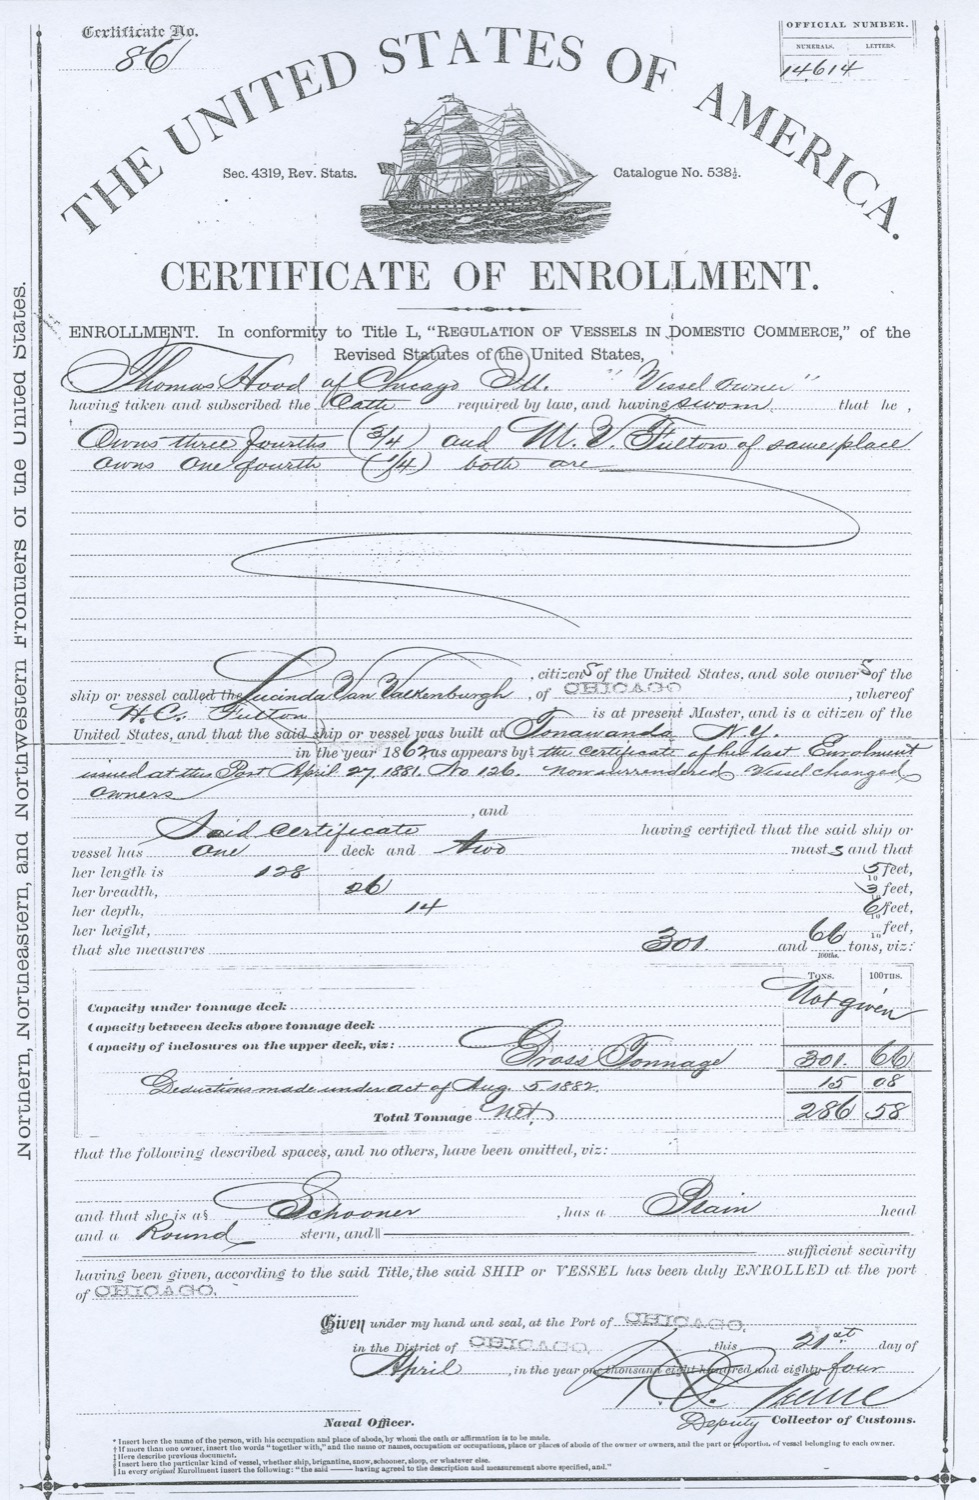 Certificate No.
86
OFFICIAL NUMBER.
NUMERALS. LETTERS.
14614
THE UNITED STATES OF AMERICA.
Sec. 4319, Rev. Stats. Catalogue No. 538½.
CERTIFICATE OF ENROLLMENT.
Northern, Northeastern, and Northwestern Frontiers of the United States.
ENROLLMENT. In conformity to Title L, "REGULATION OF VESSELS IN DOMESTIC COMMERCE," of the
Revised Statutes of the United States,
Thomas Hood of Chicago Ill. "Vessel owner"
having taken and subscribed the Oath required by law, and having sworn that he,
Owns three fourths (3/4) and M. V. Fulton of same place
owns one fourth (1/4) both are
, citizens of the United States, and sole owners of the
ship or vessel called the Lucinda Van Valkenburgh, of CHICAGO, whereof
H.C. Fulton is at present Master, and is a citizen of the
United States, and that the said ship or vessel was built at Tonawanda N.Y.
in the year 1862, as appears by‡ the certificate of her last Enrolment
issued at this Port April 27, 1881. No 126. now surrendered Vessel changed
owners
, and
Said Certificate having certified that the said ship or
vessel has one deck and two masts and that
her length is 128 5/10 feet,
her breadth, 26 3/10 feet,
her depth, 14 6/10 feet,
her height, /10 feet,
that she measures 301 and 66/100ths. tons, viz:
TONS. 100THS.
Capacity under tonnage deck Not given
Capacity between decks above tonnage deck
Capacity of inclosures on the upper deck, viz:
Gross Tonnage 301 66
Deductions made under act of Aug. 5, 1882. 15 08
Total Tonnage Net 286 58
that the following described spaces, and no others, have been omitted, viz:
and that she is a§ Schooner, has a Plain head
and a Round stern, and‖
sufficient security
having been given, according to the said Title, the said SHIP or VESSEL has been duly ENROLLED at the port
of CHICAGO.
Given under my hand and seal, at the Port of CHICAGO,
in the District of CHICAGO, this 21st day of
April, in the year one thousand eight hundred and eighty four
Deputy Collector of Customs.
Naval Officer.
* Insert here the name of the person, with his occupation and place of abode, by whom the oath or affirmation is to be made.
† If more than one owner, insert the words "together with," and the name or names, occupation or occupations, place or places of abode of the owner or owners, and the part or proportion of vessel belonging to each owner.
‡ Here describe previous document.
§ Insert here the particular kind of vessel, whether ship, brigantine, snow, schooner, sloop, or whatever else.
‖ In every original Enrollment insert the following: "the said —— having agreed to the description and measurement above specified, and."